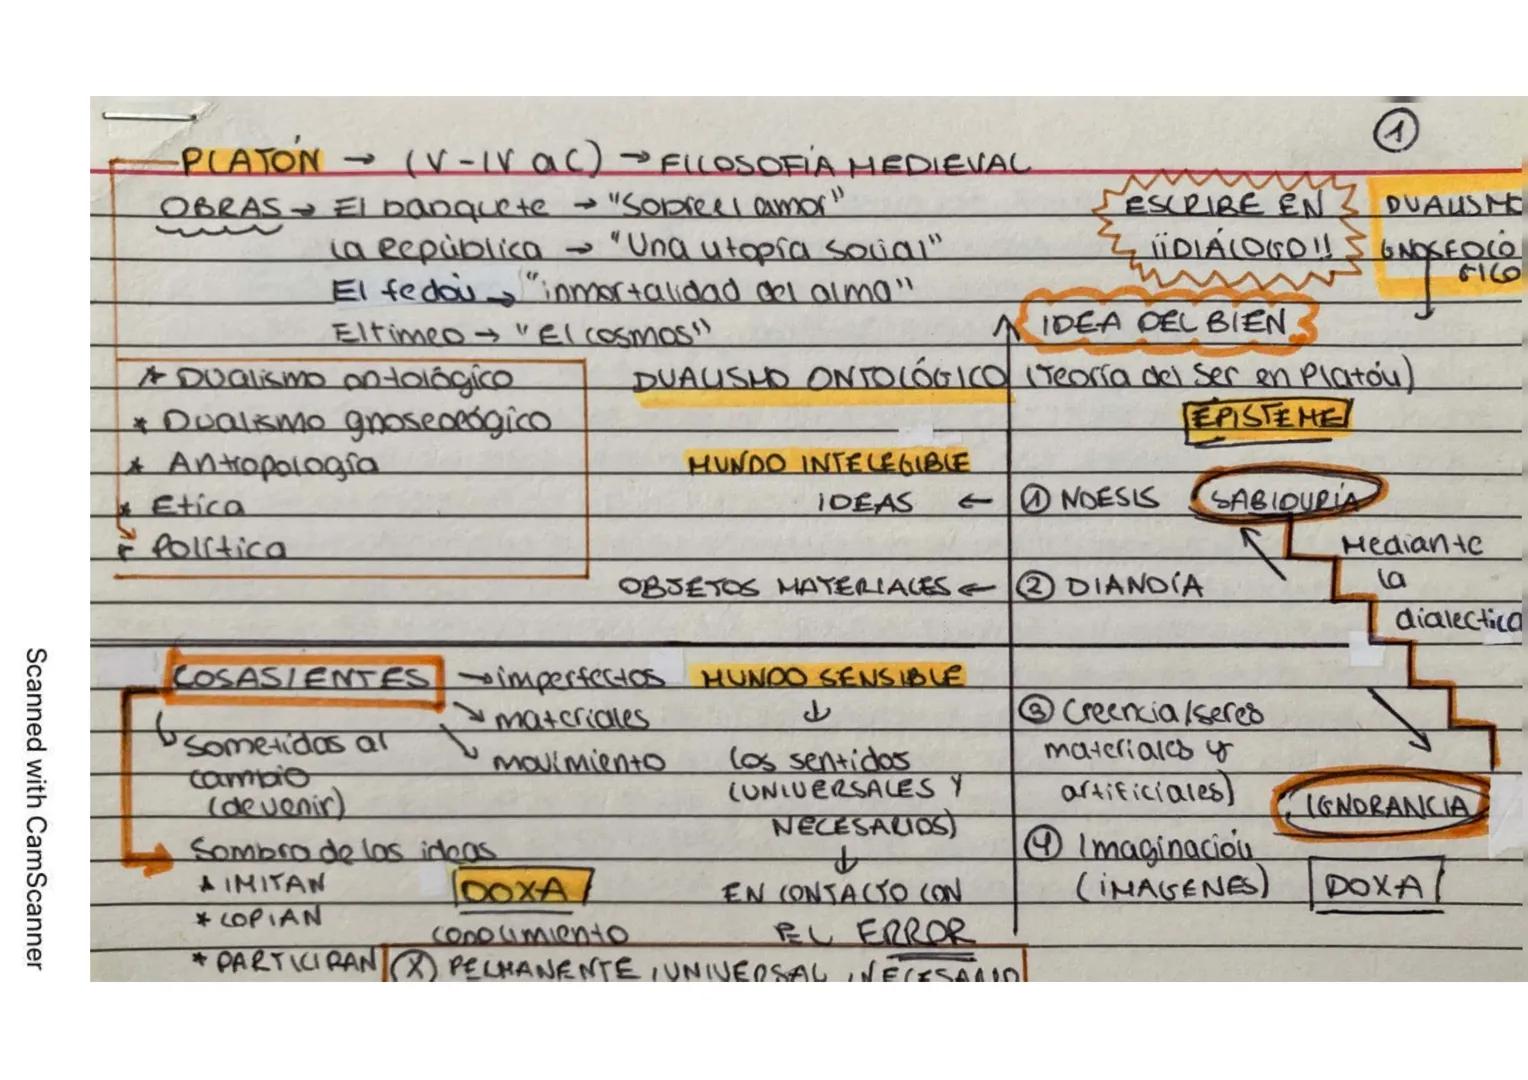 ①
PLATÓN → (V-IV aC) → FILOSOFÍA MEDIEVAL
OBRAS → El banquete → "Sobre el amor"
La República → "Una utopía social"
El fedón → "inmortalidad del alma"
El timeo → "El cosmos"
ESCRIBE EN
¡¡DIÁLOGO!!
DUALISMO
GNOSEOLÓ
GICO
* Dualismo ontológico
* Dualismo gnoseológico
* Antropología
* Etica
* Política
IDEA DEL BIEN
DUALISMO ONTOLÓGICO (Teoría del Ser en Platón)
EPISTEME
MUNDO INTELEGIBLE
IDEAS ← ① NOESIS SABIDURÍA
Mediante
la
dialectica
OBJETOS MATERIALES ← ② DIANOÍA
COSAS/ENTES → imperfectos
materiales
movimiento
Sometidas al
cambio
(devenir)
Sombra de las ideas
* IMITAN
* COPIAN
* PARTICIPAN
DOXA
conocimiento
(X) PERMANENTE, UNIVERSAL, NECESARIO
MUNDO SENSIBLE
↓
Los sentidos
(UNIVERSALES Y
NECESARIOS)
↓
EN CONTACTO CON
EL ERROR
③ Creencia/seres
materiales y
artificiales)
IGNORANCIA
④ Imaginación
(IMAGENES)
DOXA
Scanned with CamScanner